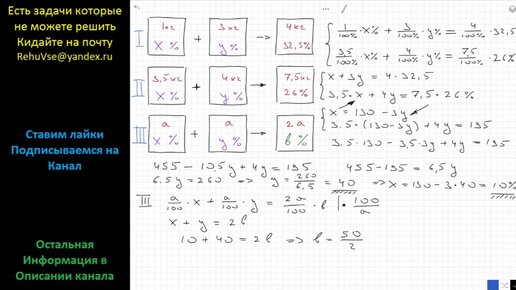 Есть задачи которые
не можете решить
Кидайте на почту
RehuVse@yandex.ru
Ставим лайки
Подписываемся на
Канал
Остальная
Информация в
Описании канала
I 1кг x % + 3 кг y % → 4 кг 32,5%
II 3,5 кг x % + 4 кг y % → 7,5 кг 26%
III a x % + a y % → 2a b %
1/100% · x% + 3/100% · y% = 4/100% · 32,5
3,5/100% · x% + 4/100% · y% = 7,5/100% · 26%
x + 3y = 4 · 32,5
3,5 · x + 4y = 7,5 · 26%
x = 130 - 3y
3.5 · (130 - 3y) + 4y = 195
3,5 · 130 - 3,5 · 3y + 4y = 195
455 - 10,5 y + 4y = 195 455 - 195 = 6,5 y
6.5 y = 260 => y = 260/6,5 = 40 => x = 130 - 3 · 40 = 10%
III a/100 · x + a/100 · y = 2a/100 · b | · 100/a
x + y = 2b
10 + 40 = 2b => b = 50/2